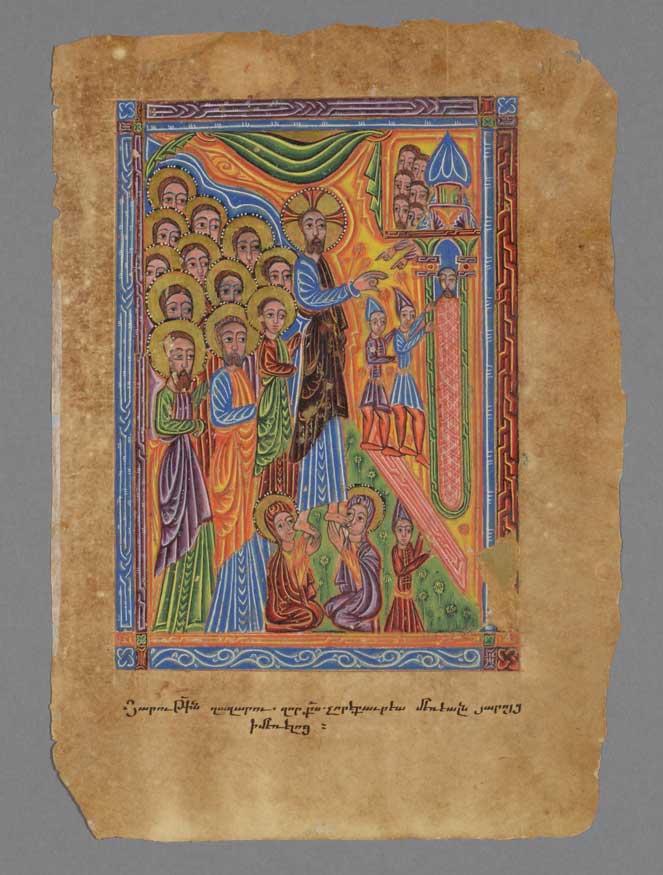 Յարութի՟ն ղազարու. զոր. ք՟ս. չորեքաւրեա մեռեալն յարոյց
իմեռելոց :